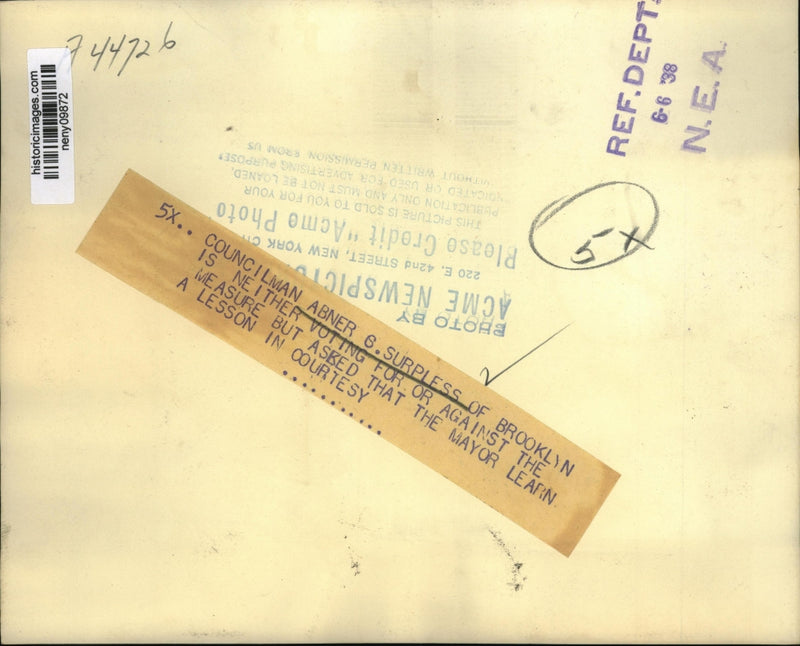 744726
historicimages.com
neny09872
REF. DEPT.
6-6 '38
N. E. A.
5X
5X.. COUNCILMAN ABNER 6. SURPLESS OF BROOKLYN
IS NEITHER VOTING FOR OR AGAINST THE
MEASURE BUT ASKED THAT THE MAYOR LEARN
A LESSON IN COURTESY
............
PHOTO BY
ACME NEWSPICTU
220 E. 42nd STREET, NEW YORK CI
Please Credit "Acme Photo
THIS PICTURE IS SOLD TO YOU FOR YOUR
PUBLICATION ONLY AND MUST NOT BE LOANED,
OR USED FOR ADVERTISING PURPOSE
WITHOUT WRITTEN PERMISSION FROM US